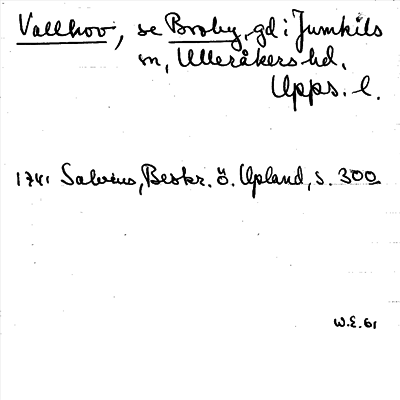 Vallhov, se Broby, gd i Jumkils
sn, Ulleråkers hd,
Upps. l.
1741 Salvius, Beskr. ö. Upland, s. 300
W.E. 61